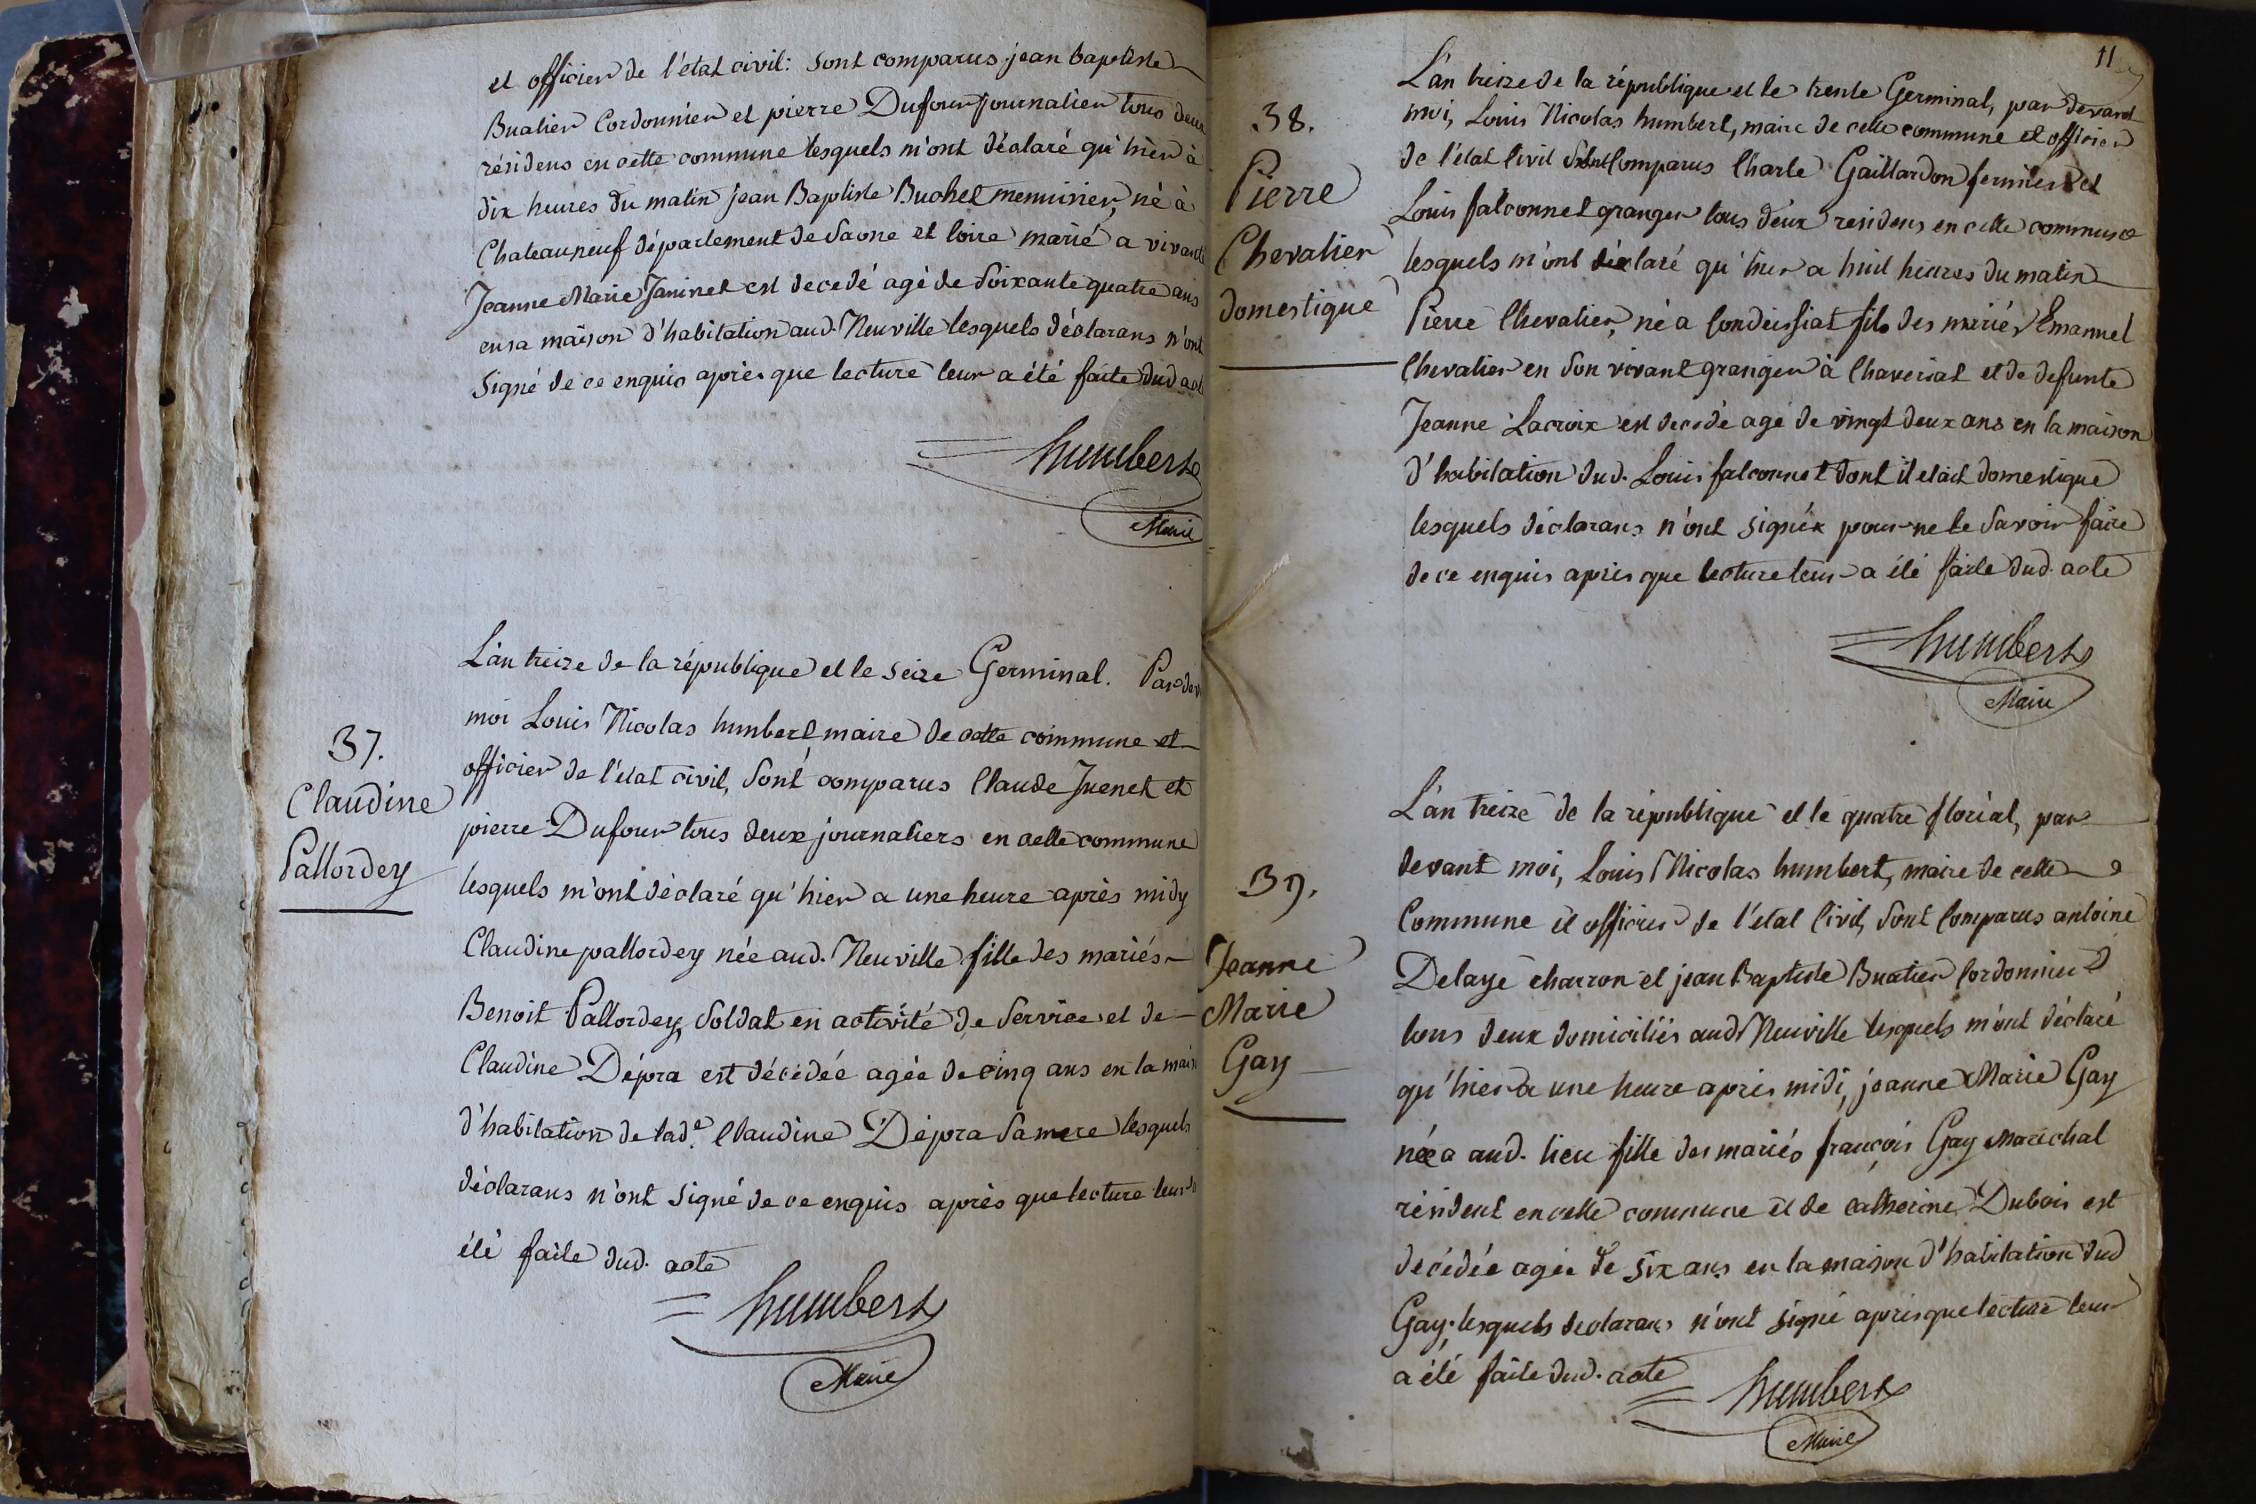 et officier de l'état civil: sont comparus jean Baptiste
Buatier Cordonnier et pierre Dufour journalier tous deux
résidens en cette commune lesquels m'ont déclaré qu'hier à
dix heures du matin jean Baptiste Buchet menuisier, né à
Chateauneuf département de Saone et loire marié a vivante
Jeanne Marie Janinet est decedé agé de Soixante quatre ans
en sa maison d'habitation aud. Neuville lesquels déclarans n'ont
Signé de ce enquis après que lecture leur a été faite dud acte
humbert
Maire
37.
Claudine
Pallordey
L'an treize de la république et le seize Germinal. Par dev
moi Louis Nicolas humbert maire de cette commune et
officier de l'état civil, Sont comparus Claude Juenet et
pierre Dufour tous deux journaliers en cette commune
lesquels m'ont déclaré qu'hier a une heure après midy
Claudine pallordey née aud. Neuville fille des mariés
Benoit Pallordey, Soldat en activité de Service et de
Claudine Dépra est décédée agée de cinq ans en la mais
d'habitation de lad.e Claudine Dépra Sa mere lesquels
déclarans n'ont Signé de ce enquis après que lecture leur a
été faite dud. acte
humbert
Maire
11
38.
Pierre
Chevalier
domestique
L'an treize de la république et le trente Germinal, par devant
moi, Louis Nicolas humbert, maire de cette commune et officier
de l'état Civil Sont Comparus Charle Gaillardon fermier et
Louis falconnet granger tous deux residens en cette commune
lesquels m'ont déclaré qu'hier a huit heures du matin
Pierre Chevalier, né a Condeissiat fils des mariés Emanuel
Chevalier en Son vivant granger à Chaveriat et de defunte
Jeanne Lacroix est decedé agé de vingt deux ans en la maison
d'habitation dud. Louis falconnet dont il etait domestique
lesquels déclarans n'ont signés pour ne le Savoir faire
de ce enquis après que lecture leur a été faite dud. acte
humbert
Maire
39.
Jeanne
Marie
Gay
L'an treize de la république et le quatre floréal, par
devant moi, Louis Nicolas humbert, maire de cette
Commune et officier de l'état Civil, Sont Comparus antoine
Delaye charron et jean Baptiste Buatier Cordonnier
tous deux domiciliés aud. Neuville lesquels m'ont déclaré
qu'hier a une heure après midi, jeanne Marie Gay
née a aud. lieu fille des mariés françois Gay Maréchal
résident en cette commune et de catherine Dubois est
décédée agée de six ans en la maison d'habitation dud
Gay. lesquels declarans n'ont signé après que lecture leur
a été faite dud. acte
humbert
Maire